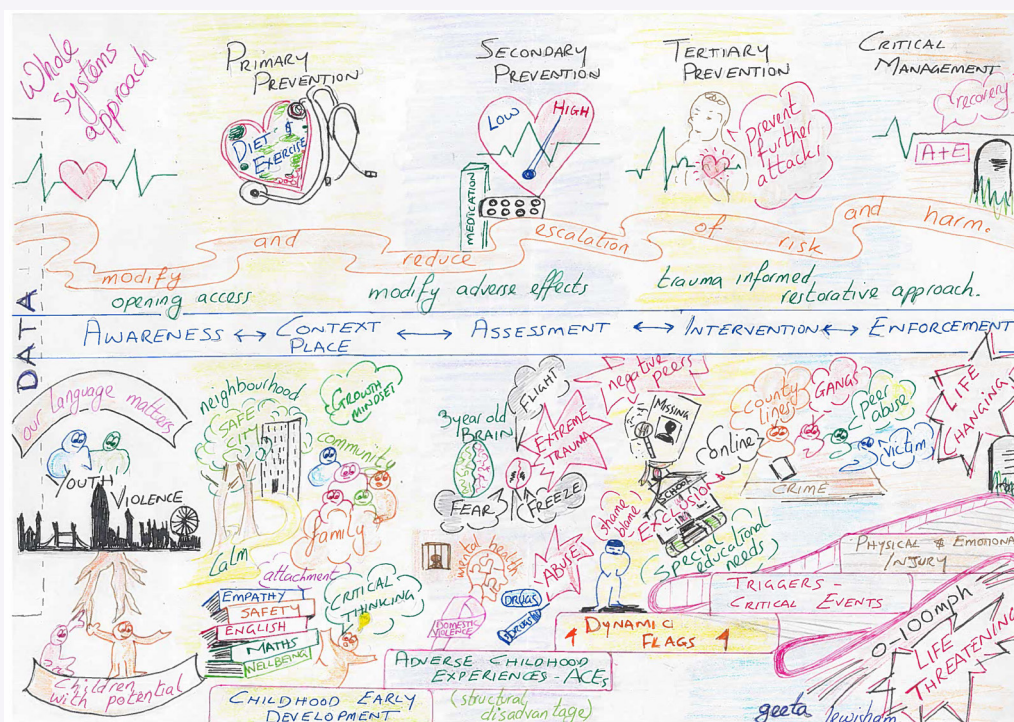 Whole
systems
approach
PRIMARY
PREVENTION
DIET &
EXERCISE
SECONDARY
PREVENTION
LOW
HIGH
MEDICATION
TERTIARY
PREVENTION
Prevent
further
attacks
CRITICAL
MANAGEMENT
recovery
A+E
modify and reduce escalation of risk and harm.
opening access
modify adverse effects
trauma informed
restorative approach.
DATA
AWARENESS ↔ CONTEXT ↔ ASSESSMENT ↔ INTERVENTION ↔ ENFORCEMENT
PLACE
our language matters
YOUTH
VIOLENCE
Children
with potential
neighbourhood
SAFE
CITY
GROWTH
MINDSET
community
family
calm
attachment
CRITICAL
THINKING
EMPATHY
SAFETY
ENGLISH
MATHS
WELLBEING
CHILDHOOD EARLY
DEVELOPMENT
3 year old
BRAIN
FLIGHT
EXTREME
TRAUMA
FEAR
FREEZE
mental health
ABUSE
DRUGS
DOMESTIC
VIOLENCE
ADVERSE CHILDHOOD
EXPERIENCES - ACEs
(structural
disadvantage)
negative
peers
MISSING
online
SCHOOL
EXCLUSION
shame
blame
Special
educational
needs
DYNAMIC
FLAGS
county
lines
GANGS
Peer
abuse
victim
CRIME
LIFE
CHANGING
PHYSICAL & EMOTIONAL
INJURY
TRIGGERS -
CRITICAL EVENTS
0-100mph
LIFE
THREATENING
geeta lewisham